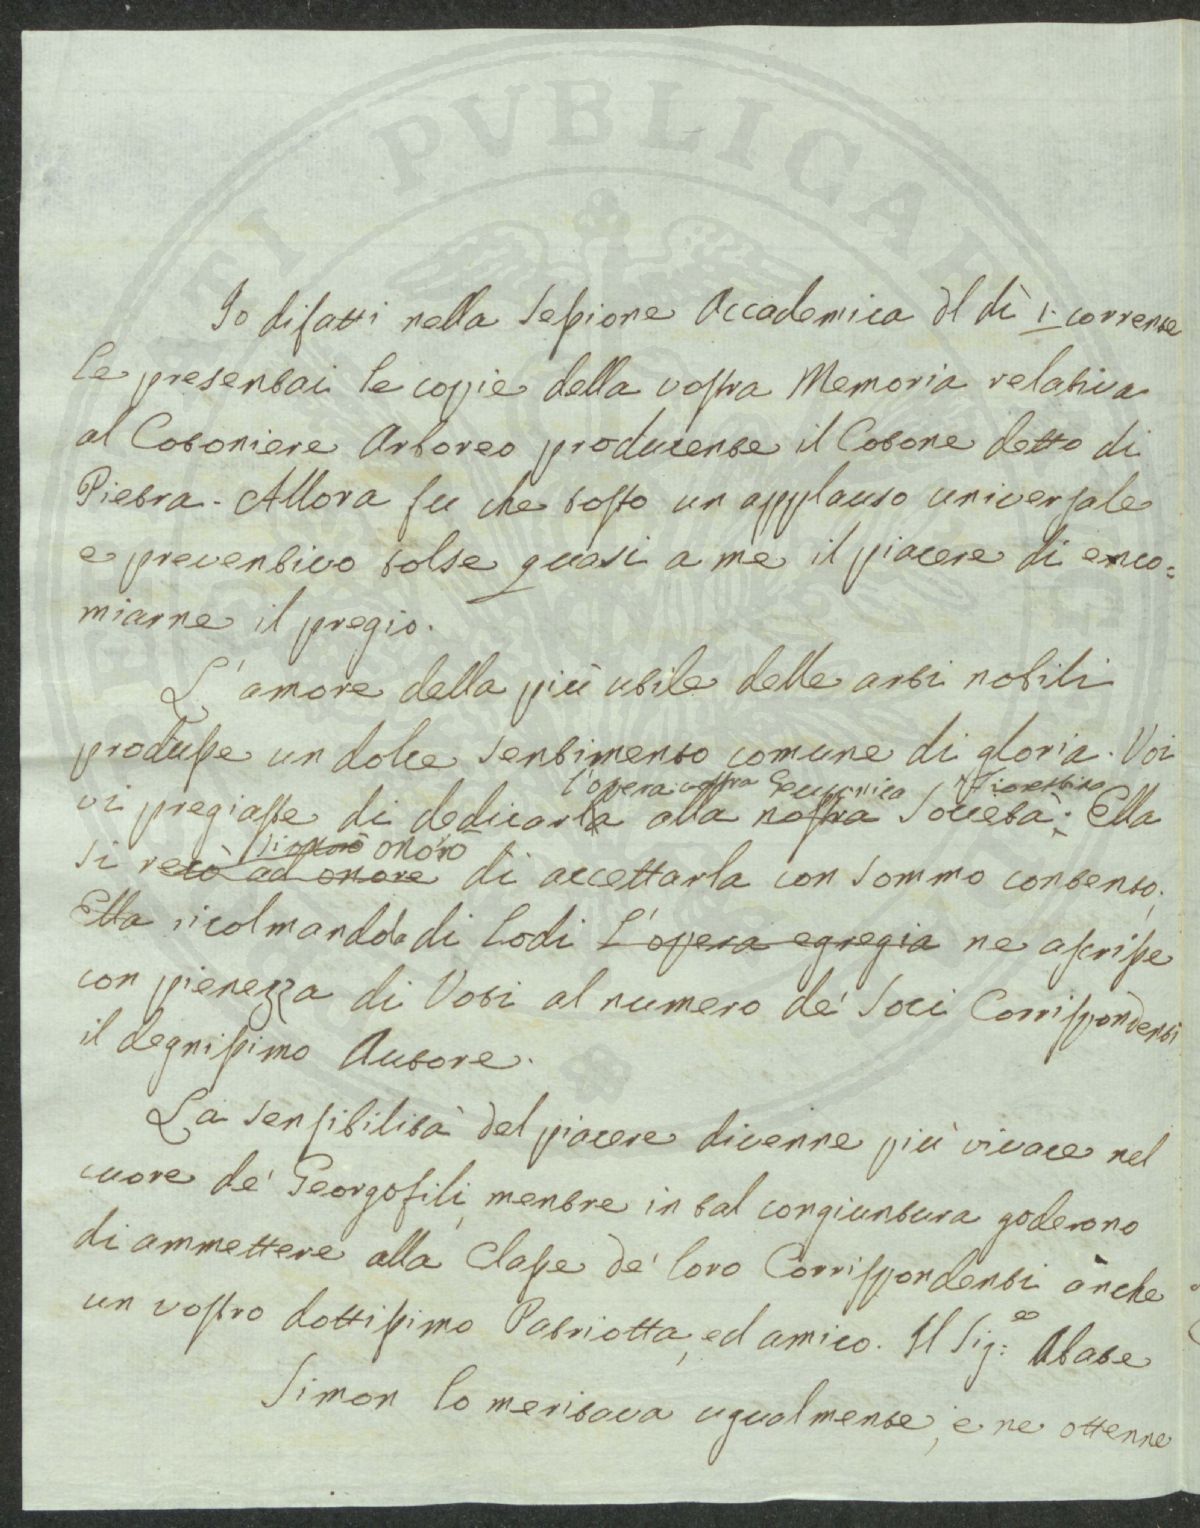 PUBLICAE REI
Io difatti nella Sessione Accademica dl dì 1. corrente
le presentai le copie della vostra Memoria relativa
al Cotoniere Arboreo producente il Cotone detto di
Pietra. Allora fu che tosto un applauso universale
e preventivo tolse quasi a me il piacere di enco=
miarne il pregio.
L'amore della più utile delle arti nobili
produsse un dolce sentimento comune di gloria. Voi
l'opera vostra Fiorentina
vi pregiaste di dedicarla alla nostra Società; Ella
onorò
si recò ad onore di accettarla con sommo contento;
Ella ricolmandola di Lodi L'opera egregia ne ascrisse
con pienezza di Voti al numero de' Soci Corrispondenti
il degnissimo Autore.
La sensibilità del piacere divenne più vivace nel
cuore de' Georgofili, mentre in tal congiuntura goderono
di ammettere alla Classe de' loro Corrispondenti anche
un vostro dottissimo Patriotta, ed amico. Il Sig:re Abate
Simon lo meritava ugualmente, e ne ottenne